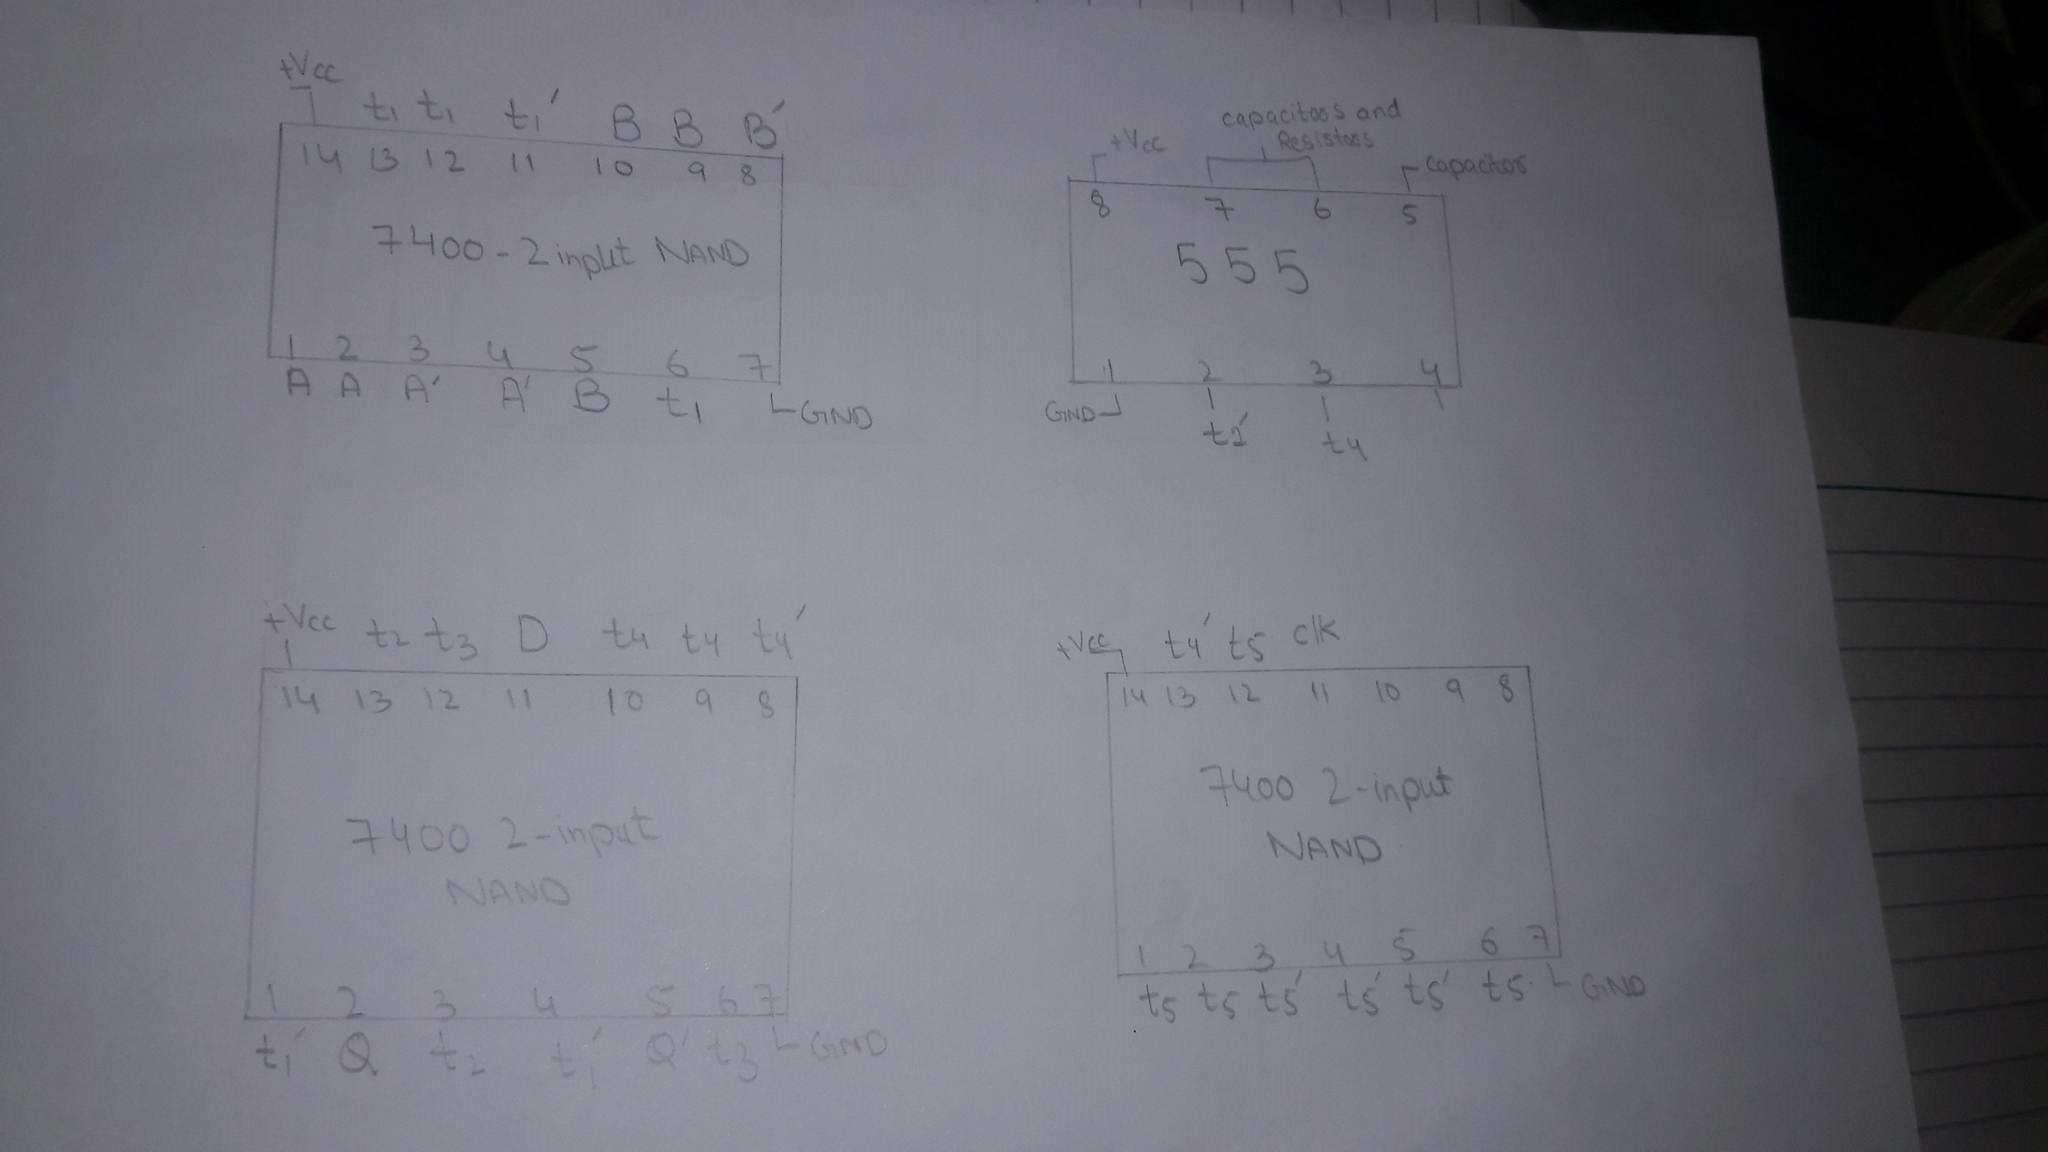 +Vcc t1 t1 t1' B B B'
14 13 12 11 10 9 8
7400-2 input NAND
1 2 3 4 5 6 7
A A A' A' B t1 GND
capacitors and
Resistors
+Vcc capacitor
8 7 6 5
555
1 2 3 4
GND t1' t4
+Vcc t2 t3 D t4 t4 t4'
14 13 12 11 10 9 8
7400 2-input
NAND
1 2 3 4 5 6 7
t1' Q t2 t1' Q' t3 GND
+Vcc t4' t5 clk
14 13 12 11 10 9 8
7400 2-input
NAND
1 2 3 4 5 6 7
t5 t5 t5' t5' t5' t5 GND